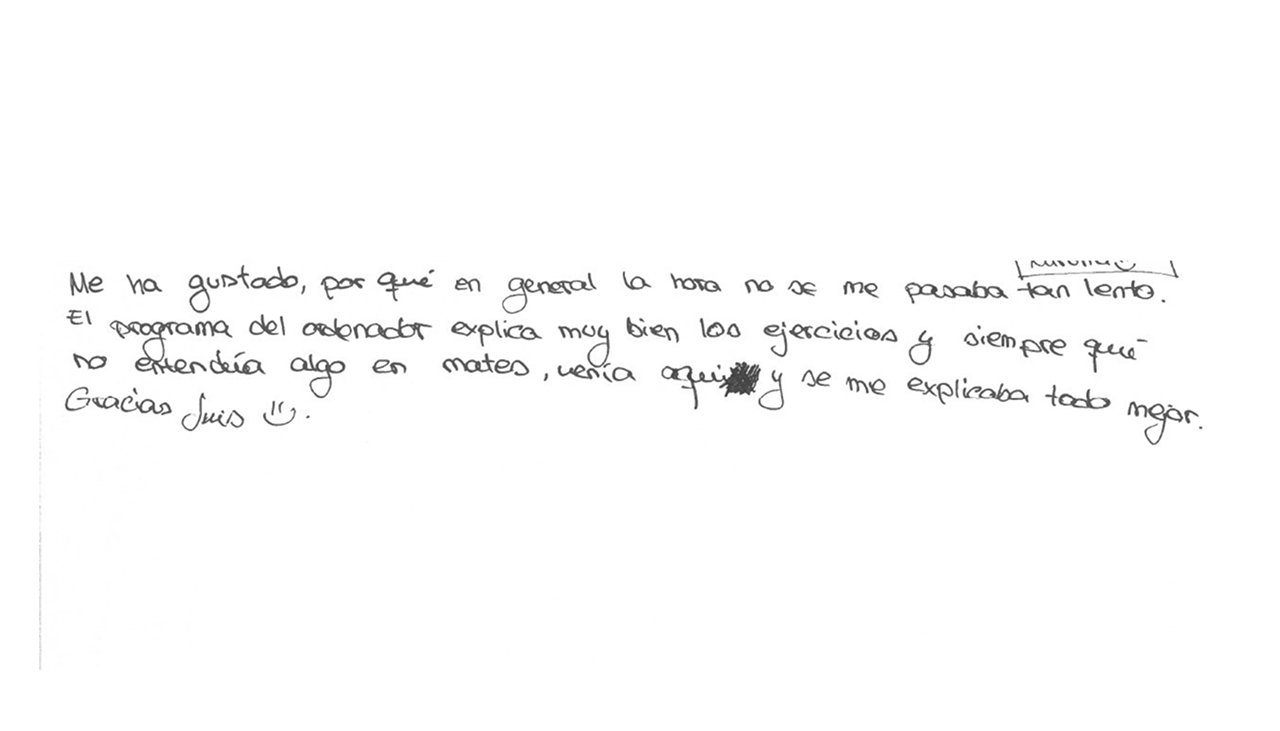 Me ha gustado, por qué en general la hora no se me pasaba tan lento.
El programa del ordenador explica muy bien los ejercicios y siempre qué
no entendía algo en mates, venía aqui y se me explicaba todo mejor.
Gracias Luis